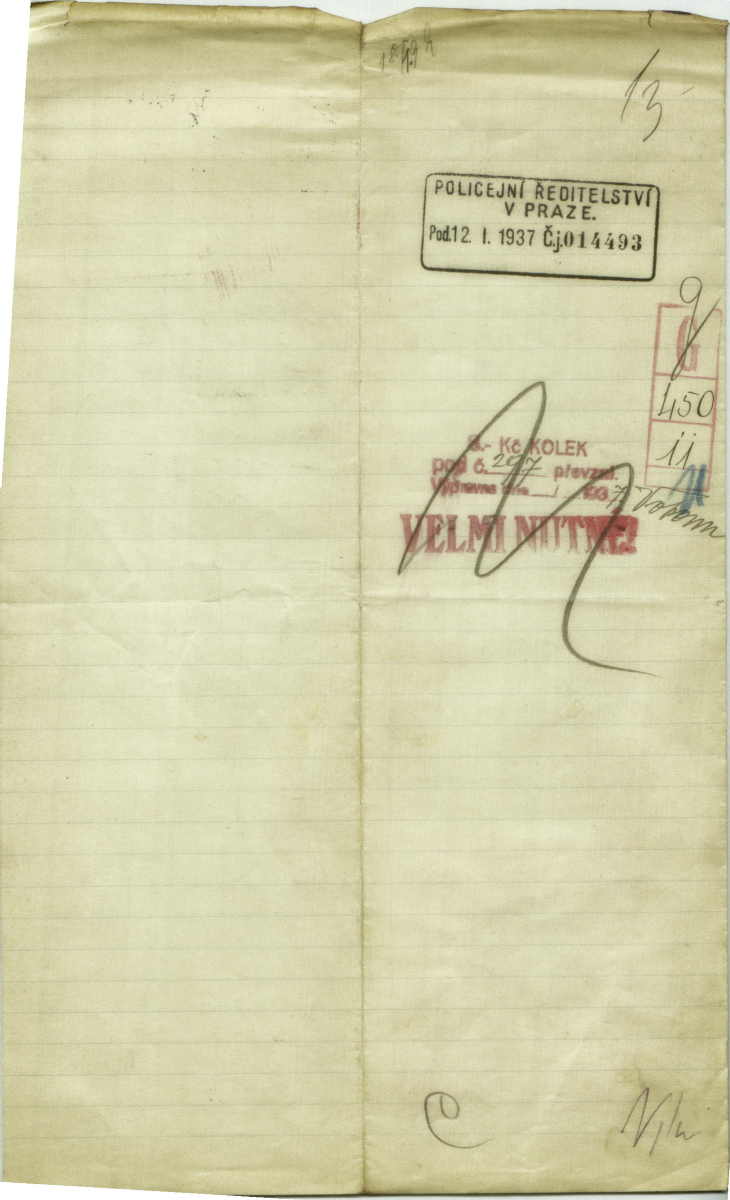 13
POLICEJNÍ ŘEDITELSTVÍ
V PRAZE.
Pod.12. I. 1937 Č.j.014493
G
450
ii
5.- Kč KOLEK
pod č. 207 převzal.
Výpravna dne / 1937
VELMI NUTNÉ!